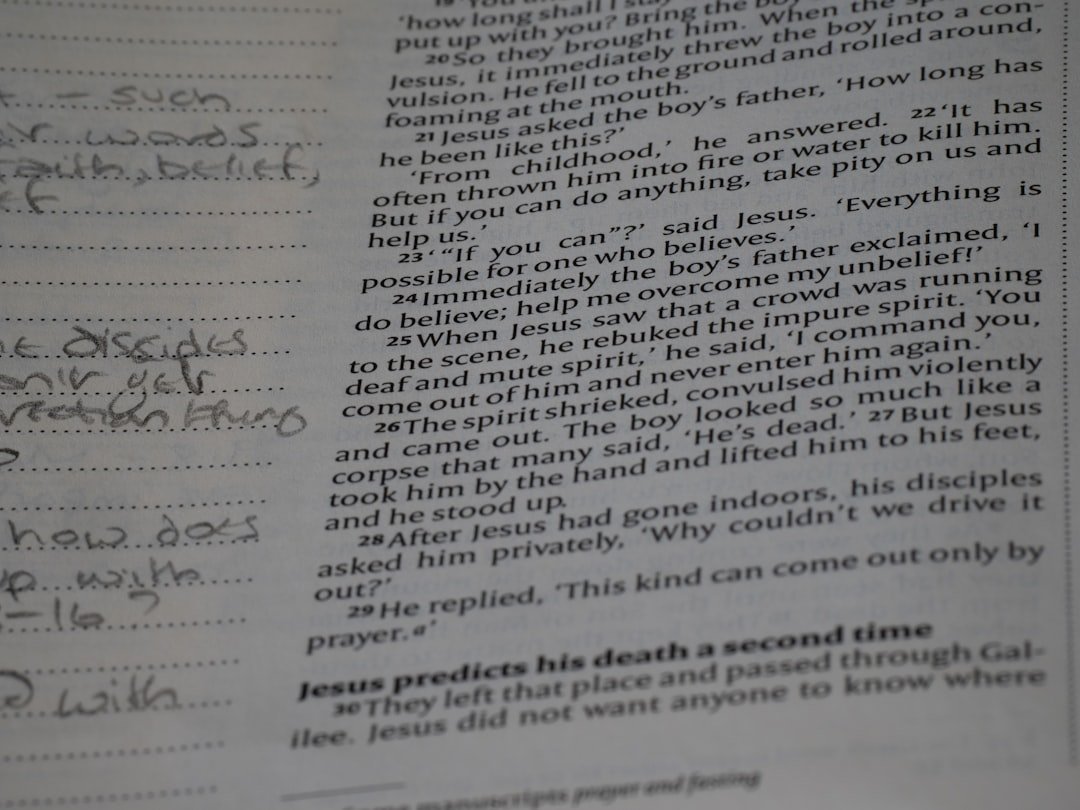 – such
words
faith, belief,
disciples
get
thing
how does
up with
-16?
with
19
'how long shall I
put up with you? Bring the
20 So they brought him. When the
Jesus, it immediately threw the boy into a con-
vulsion. He fell to the ground and rolled around,
foaming at the mouth.
21 Jesus asked the boy's father, 'How long has
he been like this?'
'From childhood,' he answered. 22 'It has
often thrown him into fire or water to kill him.
But if you can do anything, take pity on us and
help us.'
23 '"If you can"?' said Jesus. 'Everything is
possible for one who believes.'
24 Immediately the boy's father exclaimed, 'I
do believe; help me overcome my unbelief!'
25 When Jesus saw that a crowd was running
to the scene, he rebuked the impure spirit. 'You
deaf and mute spirit,' he said, 'I command you,
come out of him and never enter him again.'
26 The spirit shrieked, convulsed him violently
and came out. The boy looked so much like a
corpse that many said, 'He's dead.' 27 But Jesus
took him by the hand and lifted him to his feet,
and he stood up.
28 After Jesus had gone indoors, his disciples
asked him privately, 'Why couldn't we drive it
out?'
29 He replied, 'This kind can come out only by
prayer.a'
Jesus predicts his death a second time
30 They left that place and passed through Gal-
ilee. Jesus did not want anyone to know where
manuscripts prayer and fasting